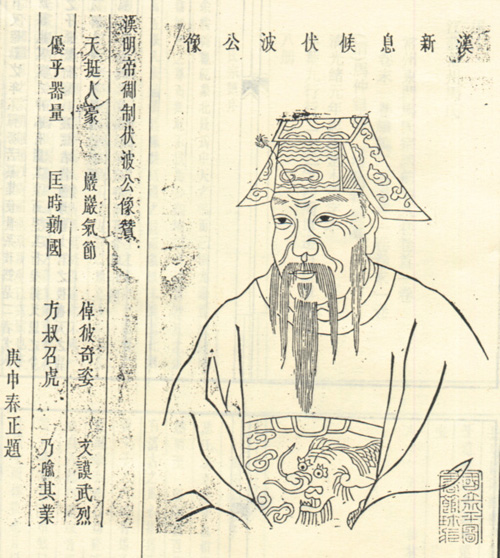 漢新息候伏波公像
漢明帝御制伏波公像贊
天挺人豪 巖巖氣節 倬彼奇姿 文謨武烈
優乎器量 匡時勳國 方叔召虎 乃喻其業
庚申春正題
國立北平圖
書館珍藏